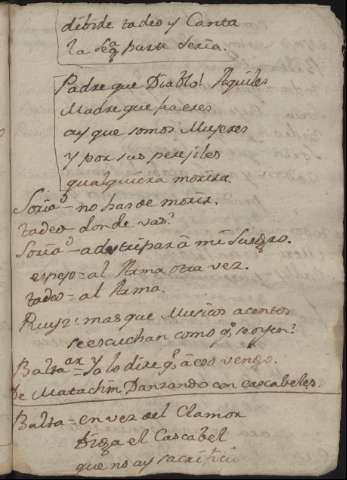 débide tadeo y Canta
la Seg.ª para Seria.
Padre que Diablo! Aquiles
Madre que fraeres
ay que somos Mujeres
y por sus perejiles
qualquiera morira.
Soria - no has de morir.
tadeo - donde vas?
Soria - a destripar a mi Suegro.
espejo - al Arma otra vez.
tadeo - al Arma.
Ruyz - mas que Musicos acentos
se escuchan como q.e se oyen?
Balta.ar - Yo lo dire q.e a eso vengo.
De Matachin Danzando con cascabeles.
Balta - en vez del Clamor
Diga el Cascabel
que no ay sacrificio